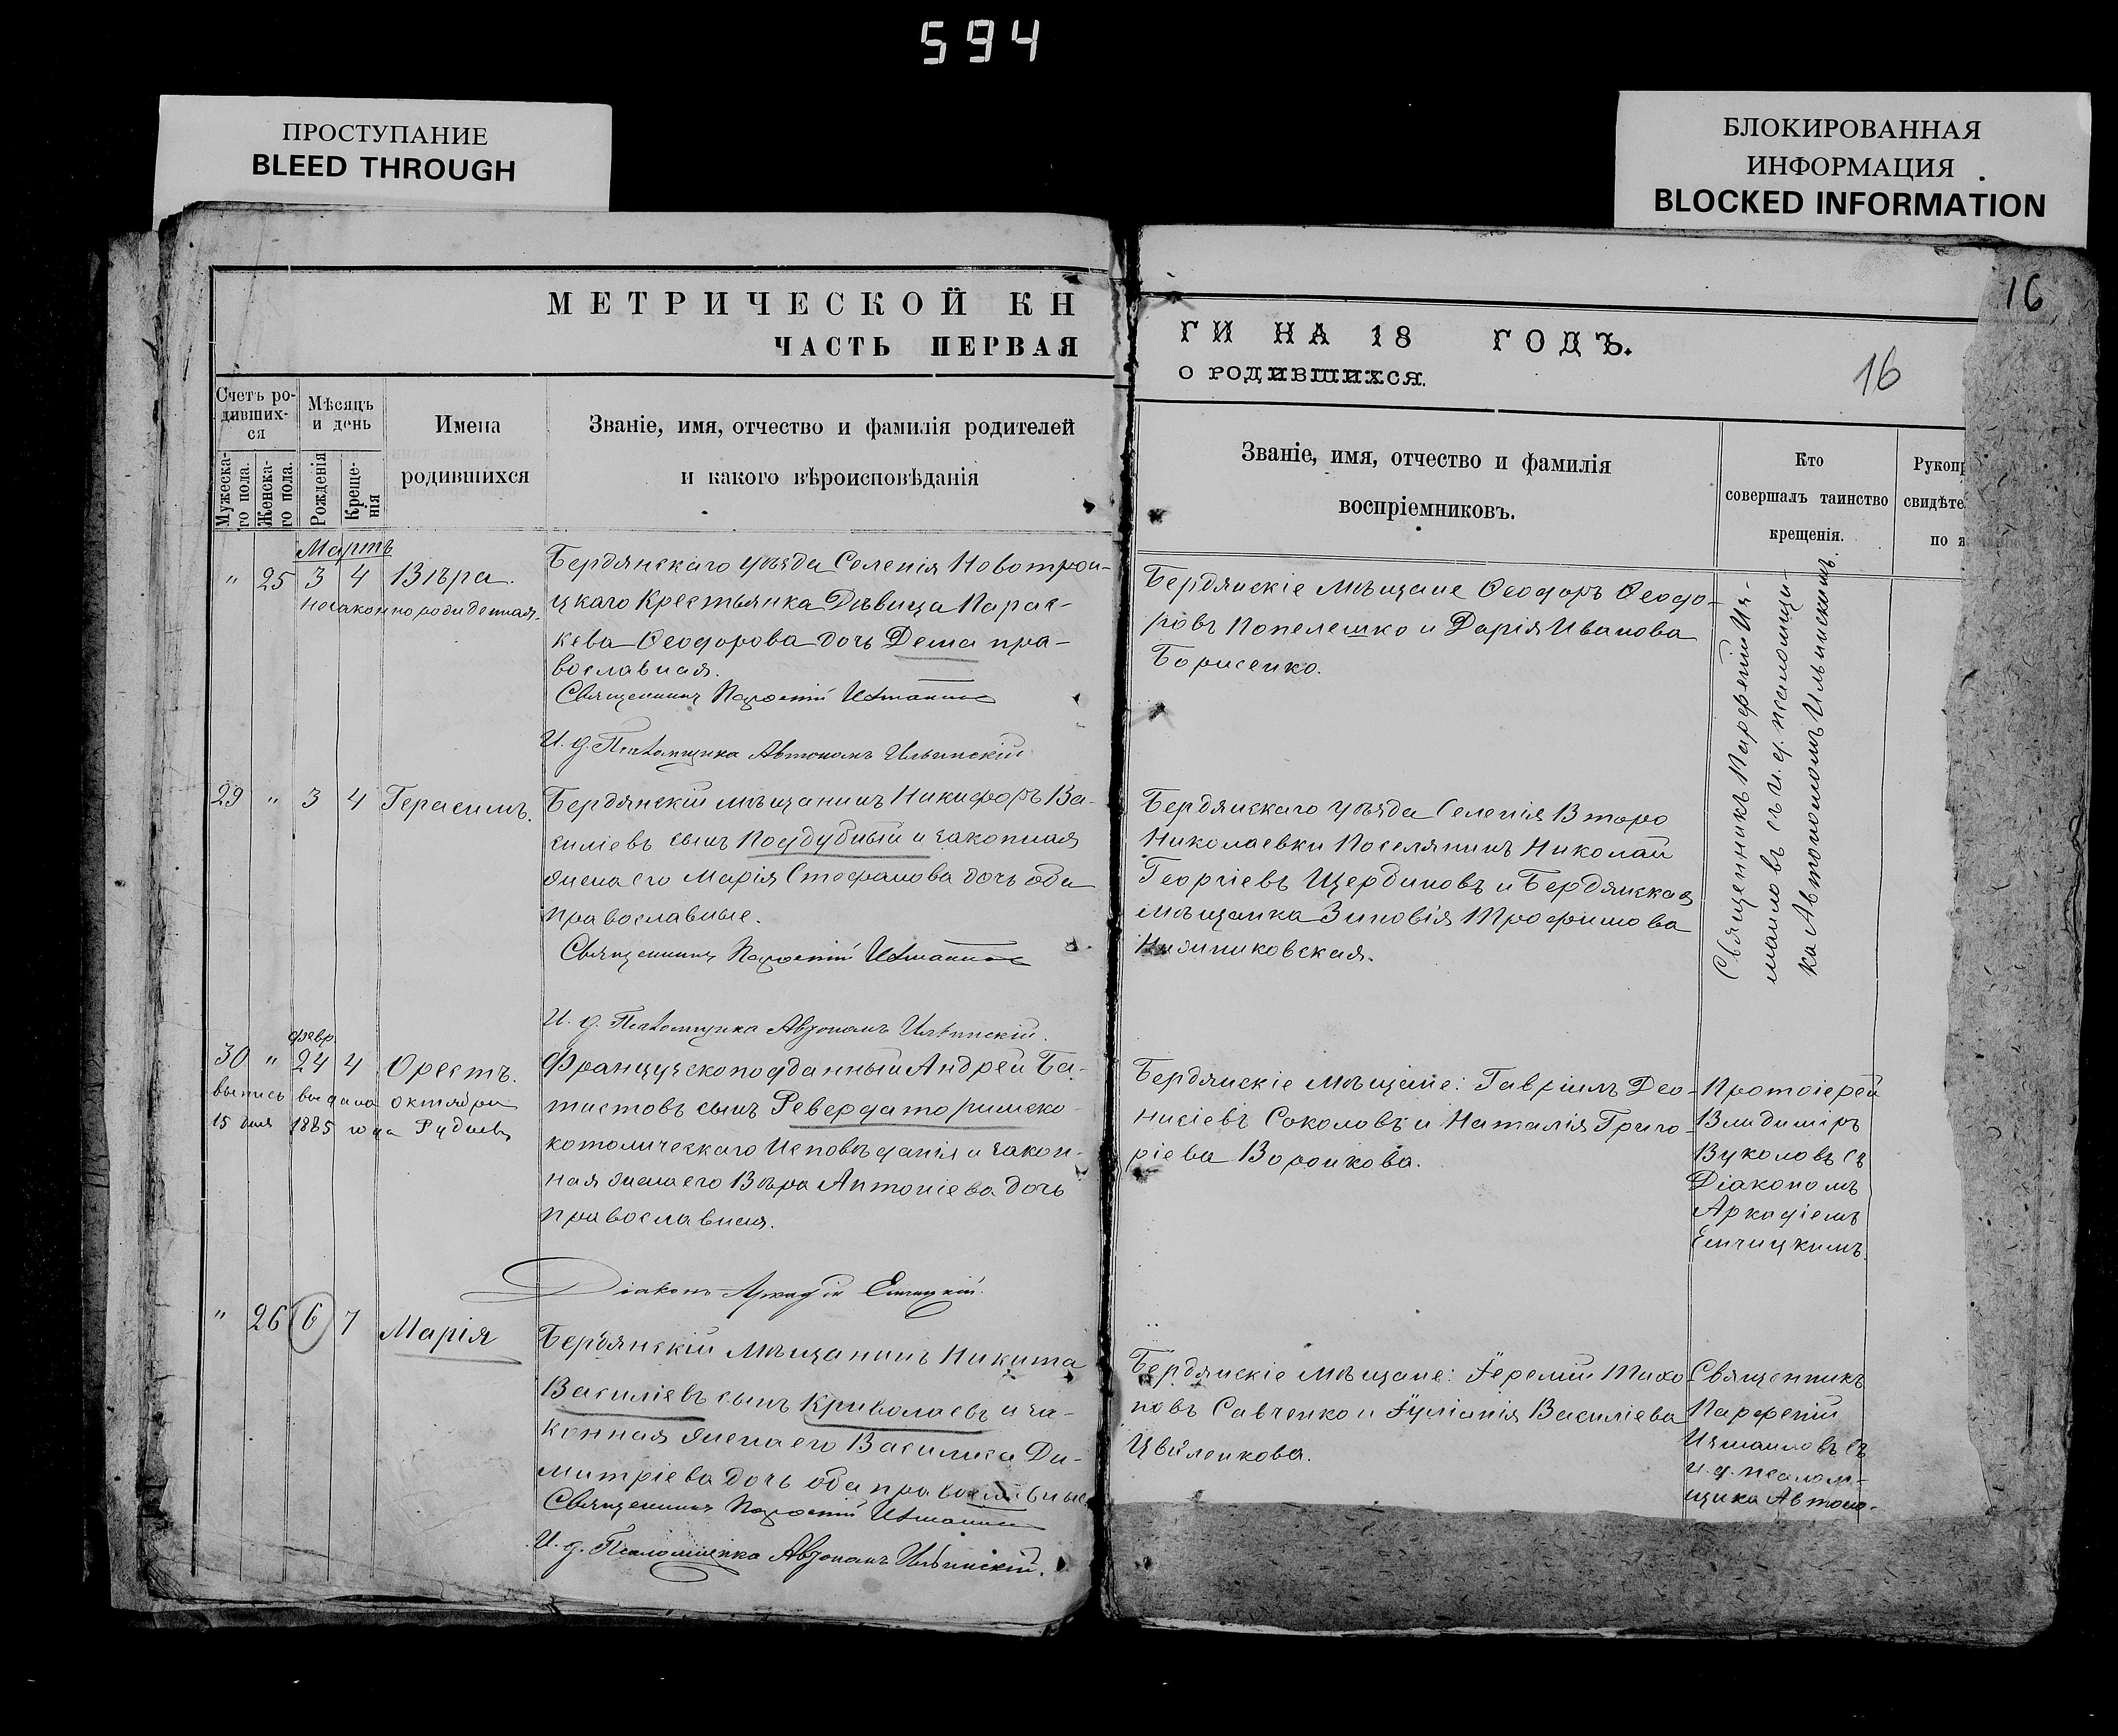 594
ПРОСТУПАНИЕ
BLEED THROUGH
БЛОКИРОВАННАЯ
ИНФОРМАЦИЯ
BLOCKED INFORMATION
16
МЕТРИЧЕСКОЙ КН
ЧАСТЬ ПЕРВАЯ
ГИ НА 18 ГОДЪ.
О РОДИВШИХСЯ.
16
Счетъ ро-
дивших-
ся
Мѣсяцъ
и день
Имена
родившихся
Мужеска-
го пола.
Женска-
го пола.
Рожденія
Креще-
нія
Званіе, имя, отчество и фамилія родителей
и какого вѣроисповѣданія
Званіе, имя, отчество и фамилія
воспріемниковъ.
Кто
совершалъ таинство
крещенія.
Рукопр
свидѣте
по я
Мартъ
" 25 3 4 Вѣра.
Незаконнорожденная.
Бердянскаго уѣзда Селенія Новотрои-
цкаго Крестьянка Дѣвица Парас-
кева Ѳеодорова дочь Деша пра-
вославная.
Священникъ Парѳеній Измаиловъ
И. д. Псаломщика Автономъ Ильинскій
Бердянскіе Мѣщане Ѳеодоръ Ѳеодо-
ровъ Попелешко и Дарія Иванова
Борисенко.
Священникъ Парѳеній Из-
маиловъ съ и. д. псаломщи-
ка Автономомъ Ильинскимъ
29 " 3 4 Герасимъ.
Бердянскій мѣщанинъ Никифоръ Ва-
силіевъ сынъ Поддубный и законная
жена его Марія Стефанова дочь оба
православные.
Священникъ Парѳеній Измаиловъ
И. д. Псаломщика Автономъ Ильинскій.
Бердянскаго уѣзда Селенія Второ
Николаевки Поселянинъ Николай
Георгіевъ Щербиновъ и Бердянская
мѣщанка Зиновія Трофимова
Нижниковская.
февр.
30 " 24 4 Орестъ.
выпись выдана октября
15 дня 1885 года
Французскоподданный Андрей Ба-
тистовъ сынъ Ревердато римско-
католическаго Исповѣданія и закон-
ная жена его Вѣра Антоніева дочь
православная.
Діаконъ Аркадій Емчицкій.
Бердянскіе Мѣщане: Гавріилъ Део-
нисіевъ Соколовъ и Наталія Григо-
ріева Воронкова.
Протоіерей
Владиміръ
Вуколовъ съ
Діакономъ
Аркадіемъ
Емчицкимъ.
" 26 6 7 Марія
Бердянскій Мѣщанинъ Никита
Василіевъ сынъ Криволаевъ и за-
конная жена его Василиса Ди-
митріева дочь оба православные
Священникъ Парѳеній Измаиловъ
И. д. Псаломщика Автономъ Ильинскій.
Бердянскіе Мѣщане: Іеремій Тихо
новъ Савченко и Іуліанія Василіева
Цвиленкова.
Священникъ
Парѳеній
Измаиловъ съ
и. д. псалом-
щика Автоно-